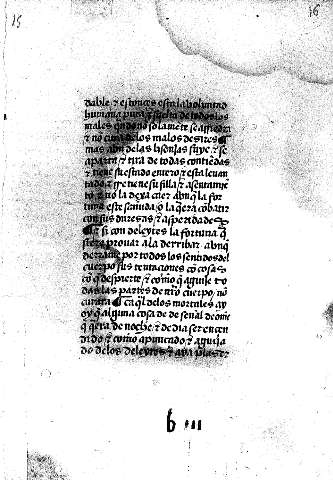 15
16
dable. & estonces esta la voluntad
humana pura & suelta de todos los
males qñdo nõ solamẽte se
& nõ cura de los malos desires
mas abñ de las lisonjas fuye & se
aparta & tira de todas contiendas
& tiene su estado entero & esta leuan
tado & q̃ tiene su silla & asentamiẽ
to & nõ la dexa caer abñq̃ la for
tuna este sañuda o la q̃era cobatir
con sus duresas & asperidades
& si con deleytes la fortuna q̃
siere prouar a la derribar abnq̃
derrame por todos los sentidos del
cuerpo sus tentaciones cõ cosas
cõ q̃ despierte & como q̃ aguise to
das las partes de nr̃o cuerpo/ nõ
curara Ca q̃l de los mortales ay
oy q̃ alguna cosa de señal de ome
q̃ q̃era de noche & de dia ser encen
dido & como apuntado & aguija
do de los deleytes & aya plaser
b iii